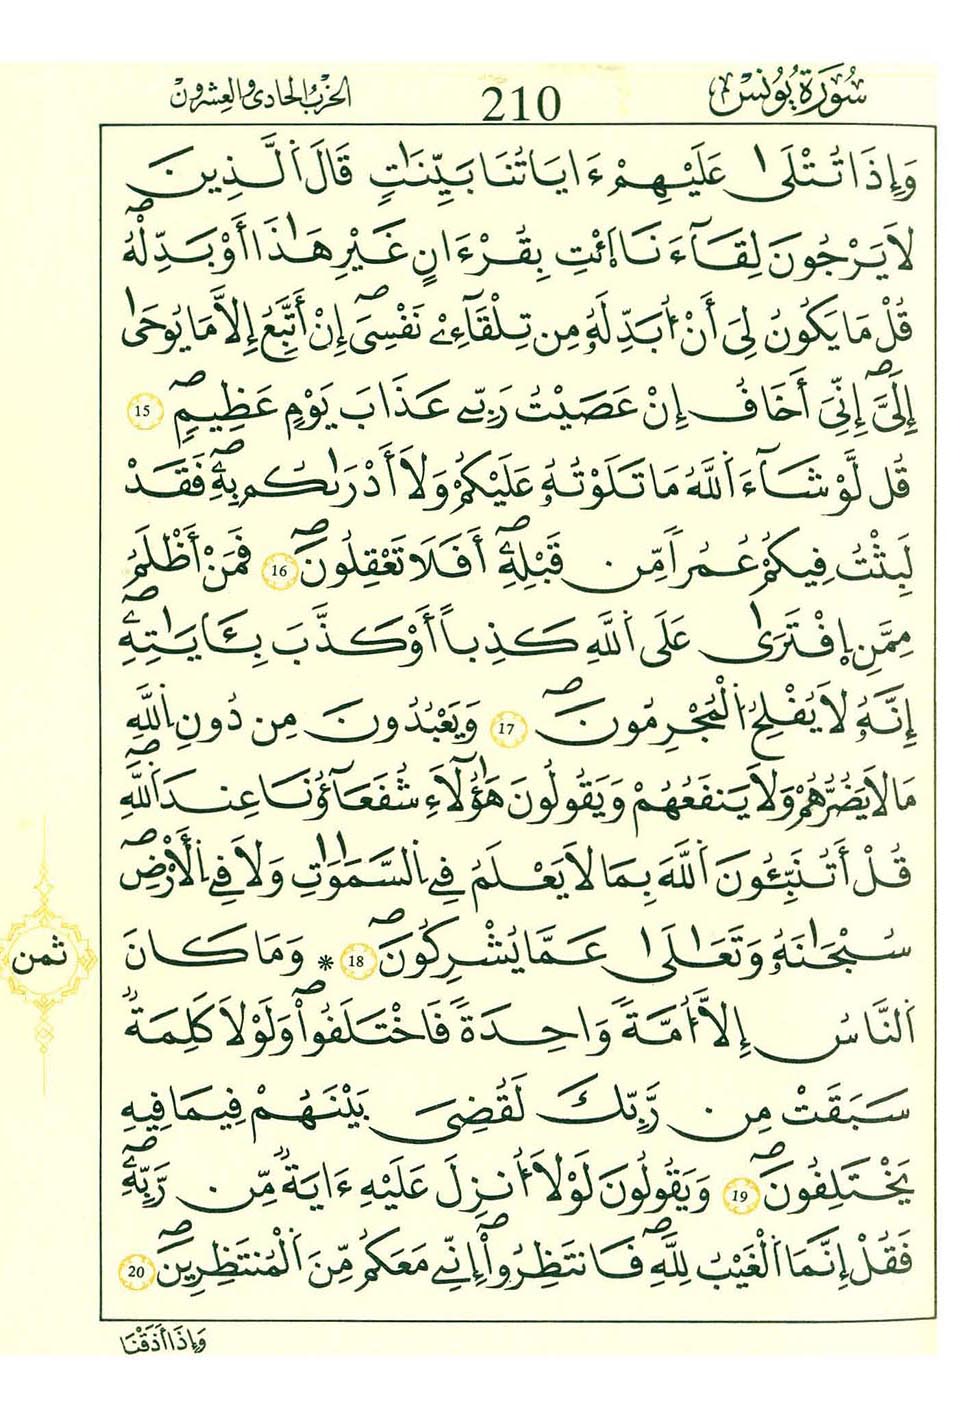 سُورَةُ يُونُسَ
210
الحِزْبُ الحَادِي وَالعِشْرُونَ
وَإِذَا تُتْلَىٰ عَلَيْهِمْ ءَايَاتُنَا بَيِّنَٰتٍ قَالَ اَ۬لَّذِينَ
لَا يَرْجُونَ لِقَآءَنَا اَ۪ئْتِ بِقُرْءَانٍ غَيْرِ هَٰذَا أَوْ بَدِّلْهُۖ
قُلْ مَا يَكُونُ لِيَ أَنْ ا۟بَدِّلَهُۥ مِن تِلْقَآءِےْ نَفْسِيَۖ إِنْ أَتَّبِعُ إِلَّا مَا يُوحَىٰ
إِلَيَّۖ إِنِّيَ أَخَافُ إِنْ عَصَيْتُ رَبِّے عَذَابَ يَوْمٍ عَظِيمٍۖ 15
قُل لَّوْ شَآءَ اَ۬للَّهُ مَا تَلَوْتُهُۥ عَلَيْكُمْ وَلَا أَدْر۪ىٰكُم بِهِۦۖ فَقَدْ
لَبِثْتُ فِيكُمْ عُمُراً مِّن قَبْلِهِۦۖ أَفَلَا تَعْقِلُونَۖ 16 فَمَنْ أَظْلَمُ
مِمَّنِ اِ۪فْتَر۪ىٰ عَلَى اَ۬للَّهِ كَذِباً أَوْ كَذَّبَ بِـَٔايَٰتِهِۦۖ
إِنَّهُۥ لَا يُفْلِحُ اُ۬لْمُجْرِمُونَۖ 17 وَيَعْبُدُونَ مِن دُونِ اِ۬للَّهِ
مَا لَا يَضُرُّهُمْ وَلَا يَنفَعُهُمْ وَيَقُولُونَ هَٰٓؤُلَآءِ شُفَعَآؤُنَا عِندَ اَ۬للَّهِۖ
قُلْ أَتُنَبِّـُٔونَ اَ۬للَّهَ بِمَا لَا يَعْلَمُ فِے اِ۬لسَّمَٰوَٰتِ وَلَا فِے اِ۬لْأَرْضِۖ
سُبْحَٰنَهُۥ وَتَعَٰلَىٰ عَمَّا يُشْرِكُونَۖ 18 * وَمَا كَانَ
اَ۬لنَّاسُ إِلَّا أُمَّةً وَاحِدَةً فَاخْتَلَفُواْۖ وَلَوْلَا كَلِمَةٌ
سَبَقَتْ مِن رَّبِّكَ لَقُضِيَ بَيْنَهُمْ فِيمَا فِيهِ
يَخْتَلِفُونَۖ 19 وَيَقُولُونَ لَوْلَا أُنزِلَ عَلَيْهِ ءَايَةٌ مِّن رَّبِّهِۦۖ
فَقُلْ إِنَّمَا اَ۬لْغَيْبُ لِلَّهِۖ فَانتَظِرُواْۖ إِنِّے مَعَكُم مِّنَ اَ۬لْمُنتَظِرِينَۖ 20
ثمن
وَإِذَا أَذَقْنَا